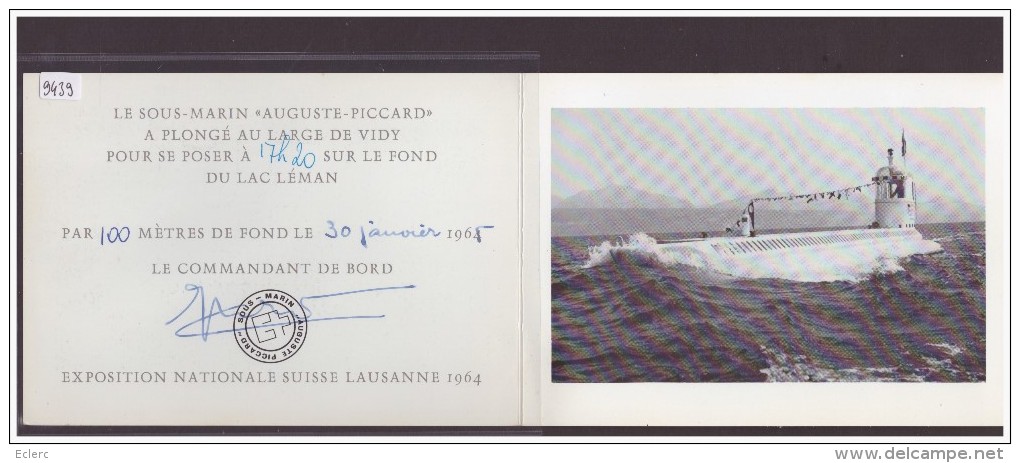 9439
LE SOUS-MARIN «AUGUSTE-PICCARD»
A PLONGÉ AU LARGE DE VIDY
POUR SE POSER À 17h20 SUR LE FOND
DU LAC LÉMAN
PAR 100 MÈTRES DE FOND LE 30 janvier 1965
LE COMMANDANT DE BORD
SOUS-MARIN "AUGUSTE PICCARD"
EXPOSITION NATIONALE SUISSE LAUSANNE 1964
Eclerc
www.delcampe.net